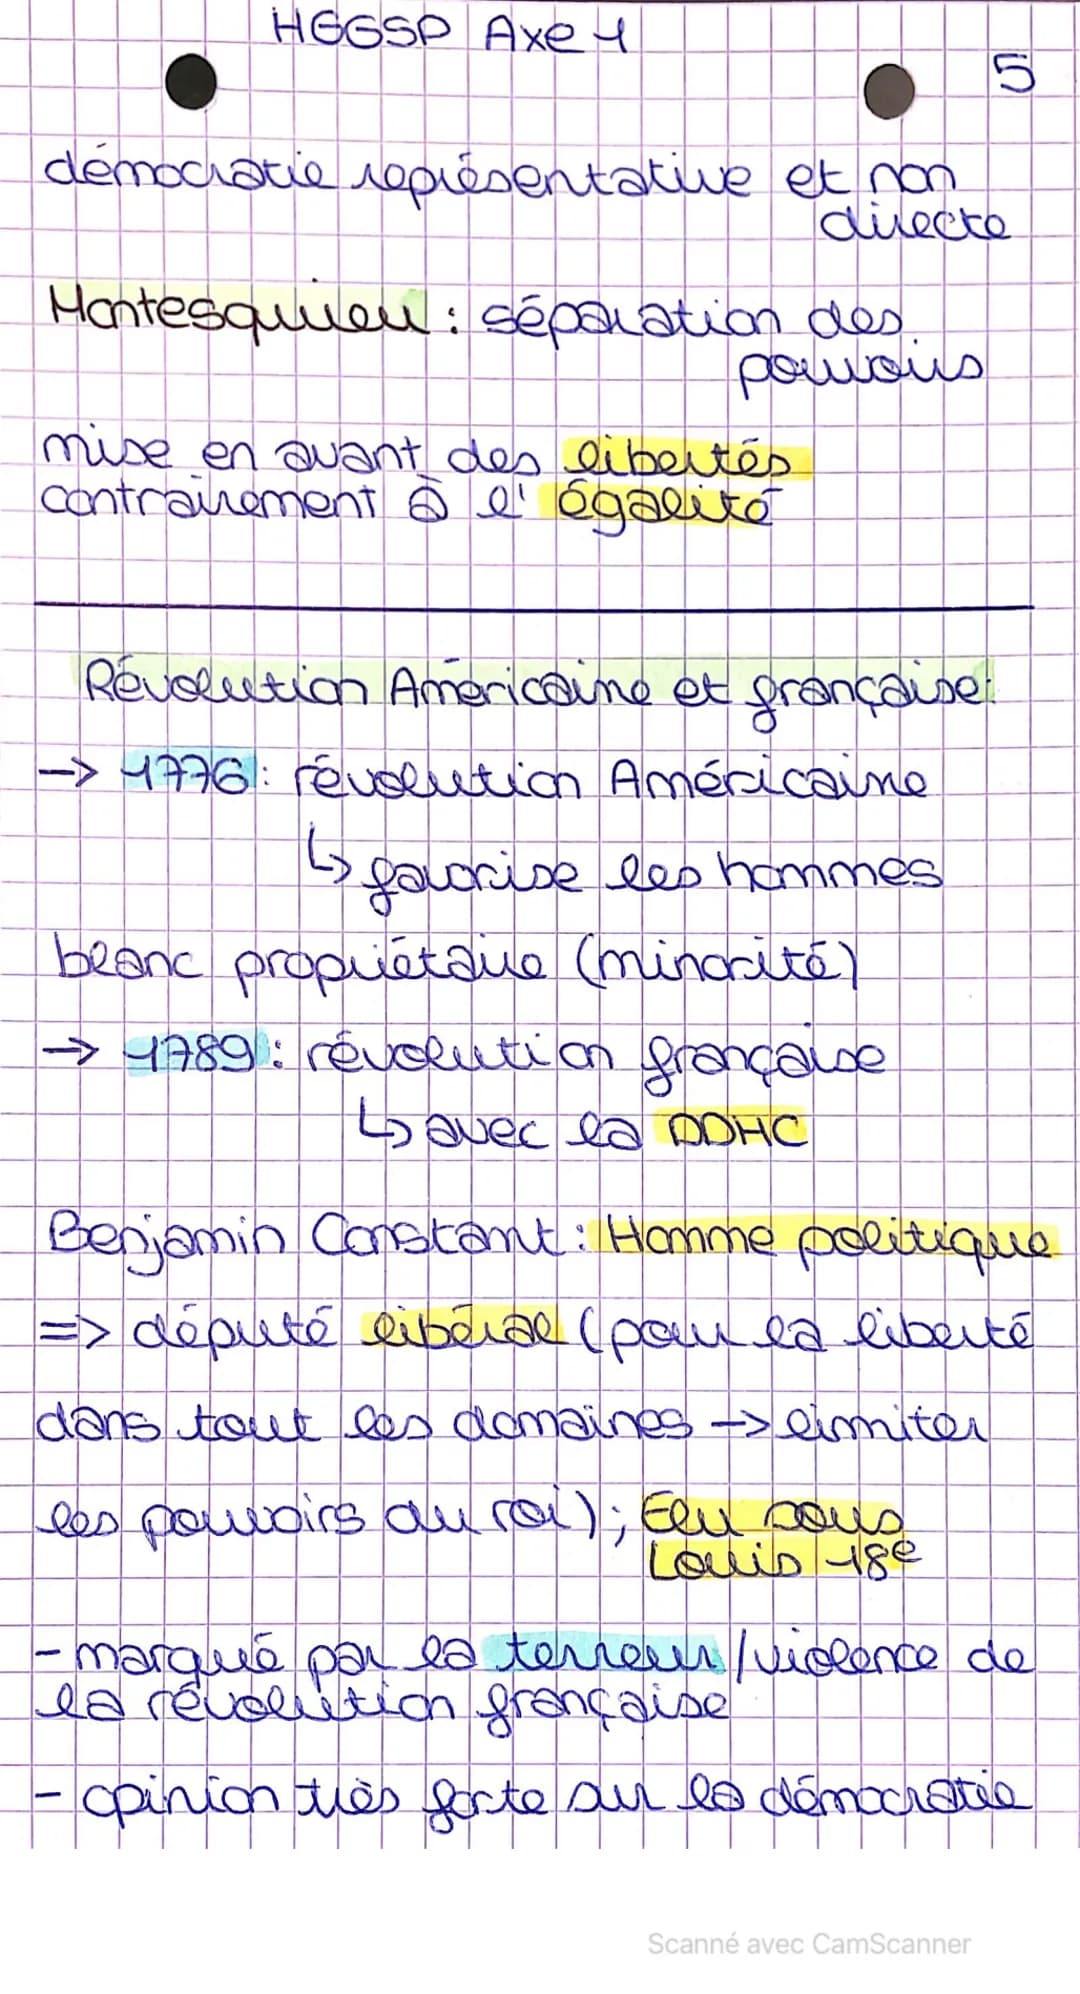 HGGSP Axe 1
5
démocratie représentative et non
directe
Montesquieu : séparation des
pouvoirs
mise en avant des libertés
contrairement à l'égalité
Révolution Américaine et française:
-> 1776 : révolution Américaine
↳ favorise les hommes
blanc propriétaire (minorité)
-> 1789 : révolution française
↳ avec la DDHC
Benjamin Constant : Homme politique
=> député libéral (pour la liberté
dans tout les domaines -> limiter
les pouvoirs du roi) ; Elu sous
Louis 18e
- marqué par la terreur / violence de
la révolution française
- opinion très forte sur la démocratie
Scanné avec CamScanner